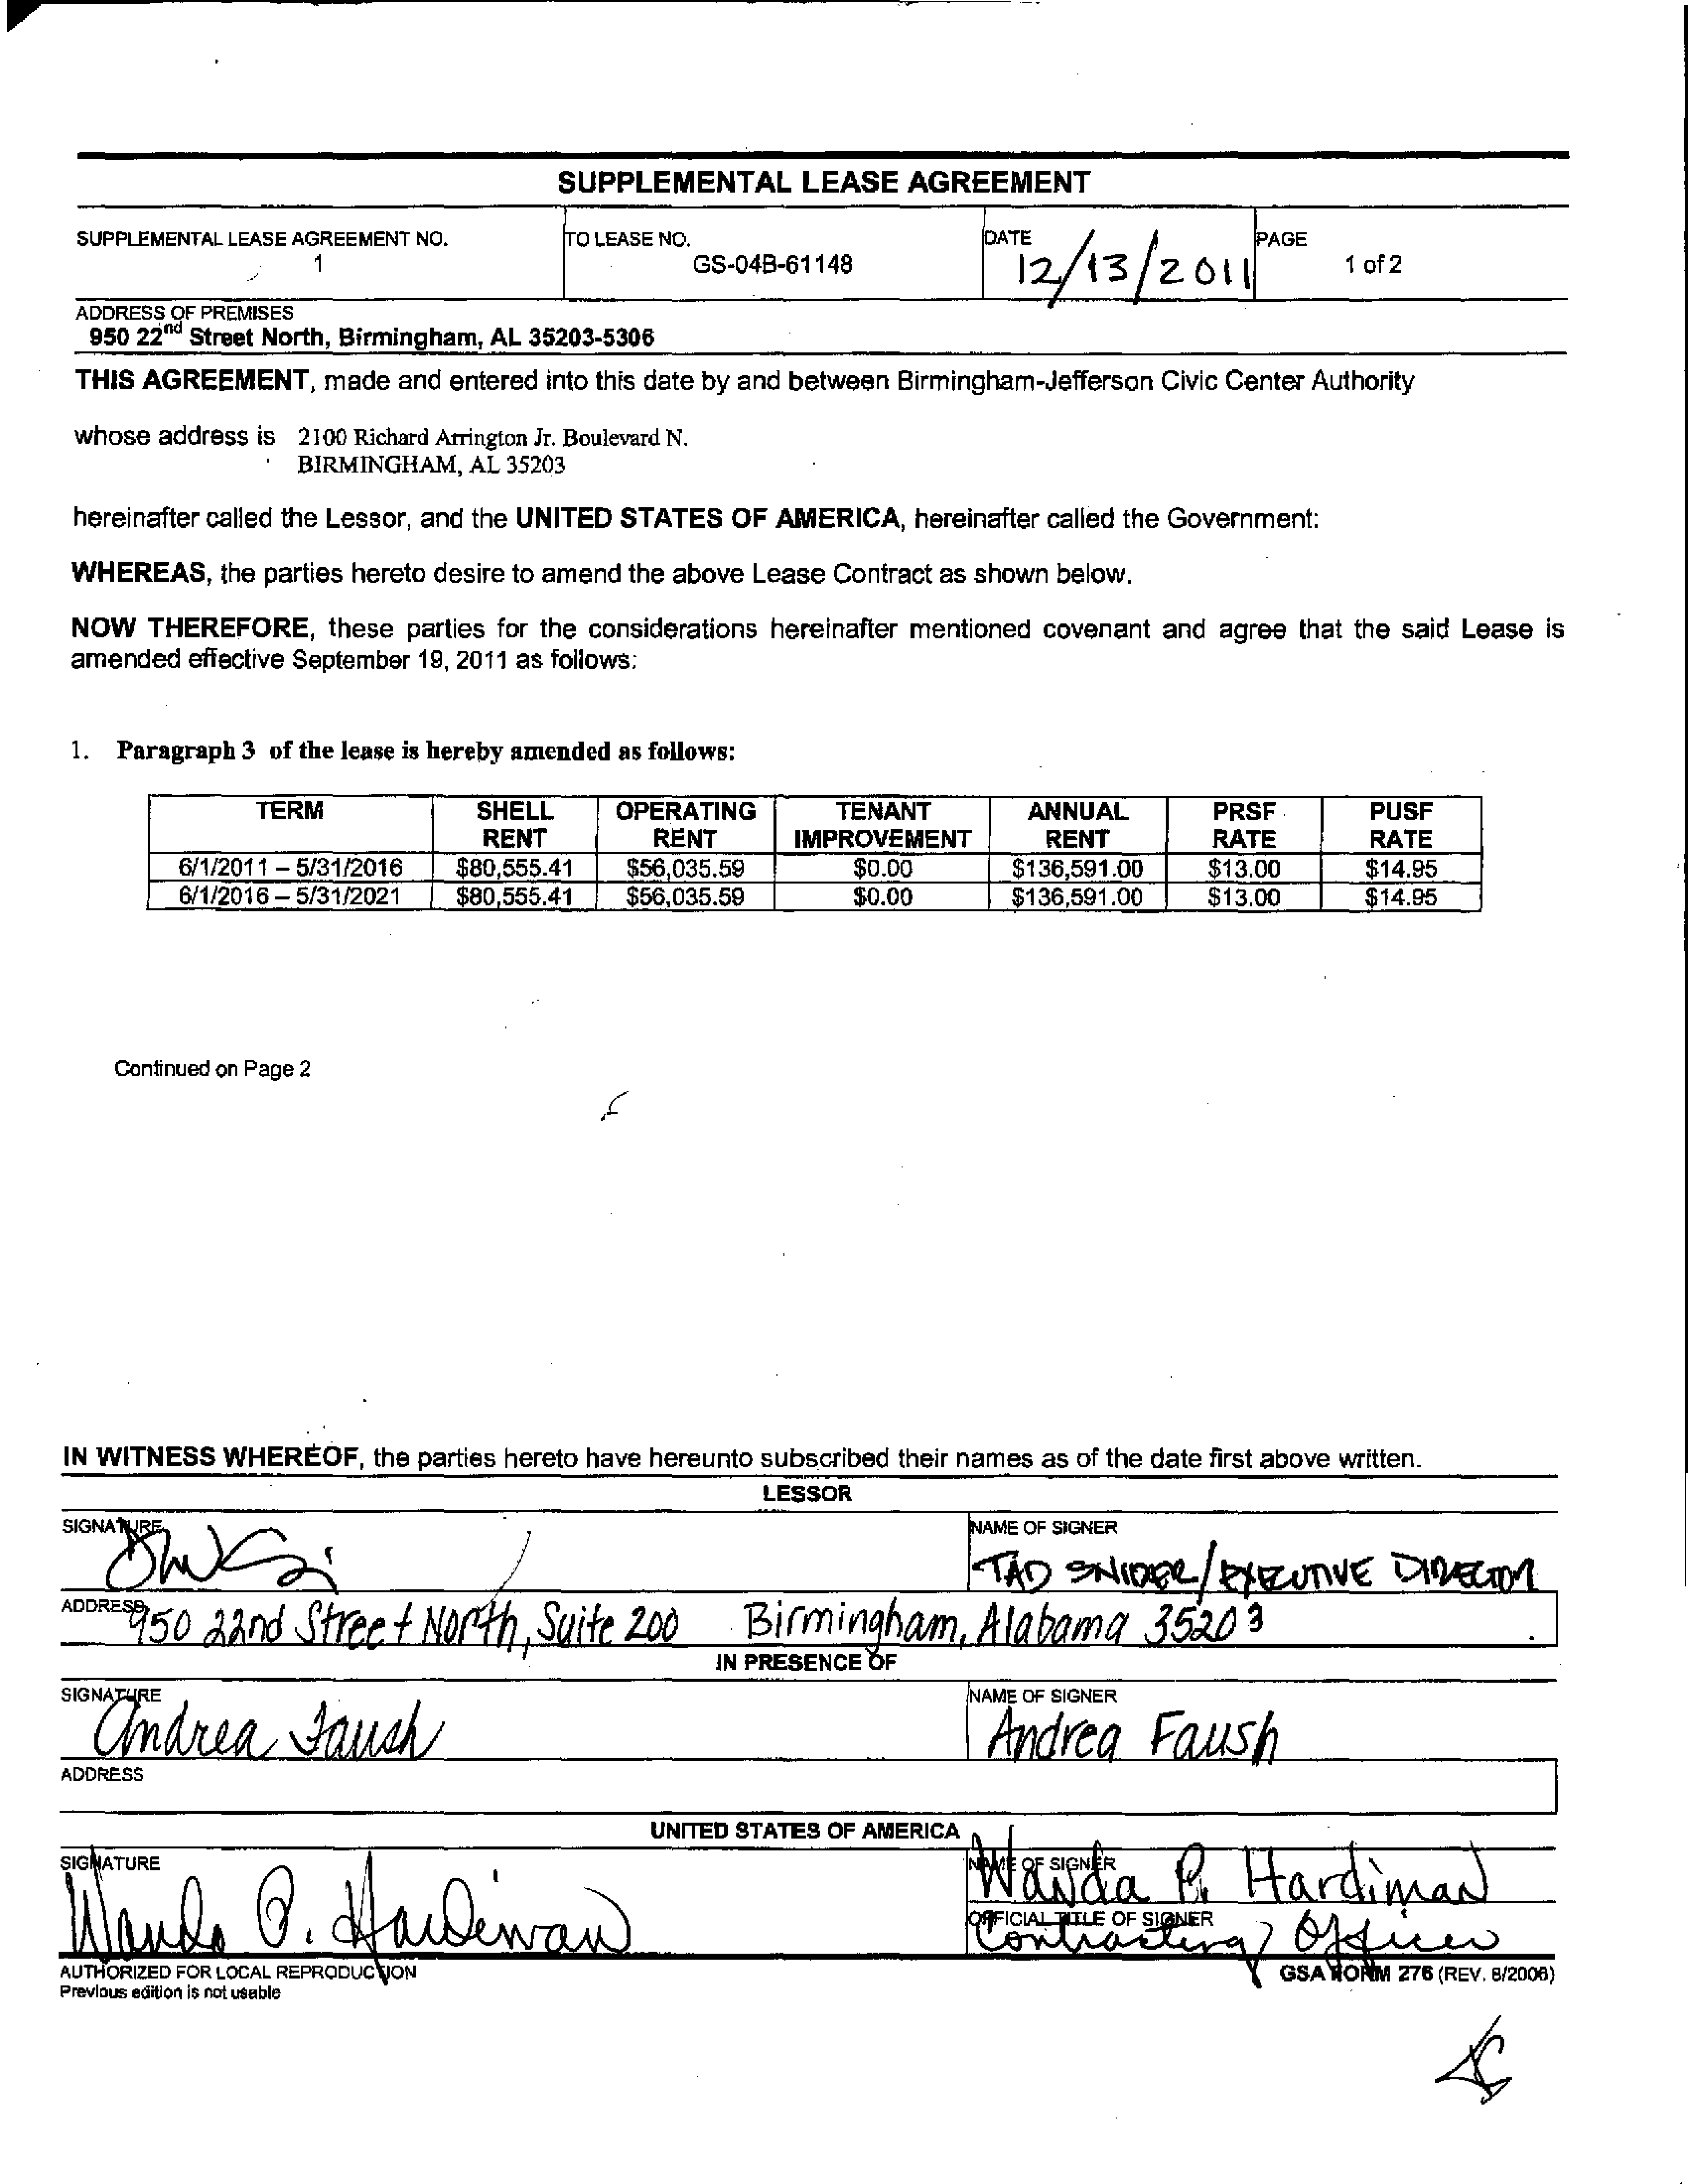 SUPPLEMENTAL LEASE AGREEMENT
SUPPLEMENTAL LEASE AGREEMENT NO.
1
TO LEASE NO.
GS-04B-61148
DATE
12/13/2011
PAGE
1 of 2
ADDRESS OF PREMISES
950 22nd Street North, Birmingham, AL 35203-5306
THIS AGREEMENT, made and entered into this date by and between Birmingham-Jefferson Civic Center Authority
whose address is 2100 Richard Arrington Jr. Boulevard N.
BIRMINGHAM, AL 35203
hereinafter called the Lessor, and the UNITED STATES OF AMERICA, hereinafter called the Government:
WHEREAS, the parties hereto desire to amend the above Lease Contract as shown below.
NOW THEREFORE, these parties for the considerations hereinafter mentioned covenant and agree that the said Lease is
amended effective September 19, 2011 as follows:
1. Paragraph 3 of the lease is hereby amended as follows:
TERM SHELL RENT OPERATING RENT TENANT IMPROVEMENT ANNUAL RENT PRSF RATE PUSF RATE
6/1/2011 – 5/31/2016 $80,555.41 $56,035.59 $0.00 $136,591.00 $13.00 $14.95
6/1/2016 – 5/31/2021 $80,555.41 $56,035.59 $0.00 $136,591.00 $13.00 $14.95
Continued on Page 2
IN WITNESS WHEREOF, the parties hereto have hereunto subscribed their names as of the date first above written.
LESSOR
SIGNATURE
NAME OF SIGNER
TAD SNIDER/EXECUTIVE DIRECTOR
ADDRESS
950 22nd Street North, Suite 200 Birmingham, Alabama 35203
IN PRESENCE OF
SIGNATURE
Andrea Faush
NAME OF SIGNER
Andrea Faush
ADDRESS
UNITED STATES OF AMERICA
SIGNATURE
Wanda P. Hardiman
NAME OF SIGNER
Wanda P. Hardiman
OFFICIAL TITLE OF SIGNER
Contracting Officer
AUTHORIZED FOR LOCAL REPRODUCTION
Previous edition is not usable
GSA FORM 276 (REV. 8/2006)